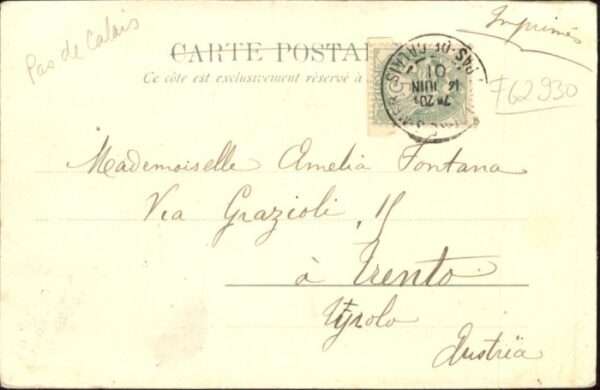 Pas de Calais
Imprimés
CARTE POSTAL
Ce côte est exclusivement réservé à
PAS-DE-CALAIS
7ᴱ 20
14 JUIN
01
F62930
Mademoiselle Amelia Fontana
Via Grazioli, 15
à Trento
Tyrolo
Austria